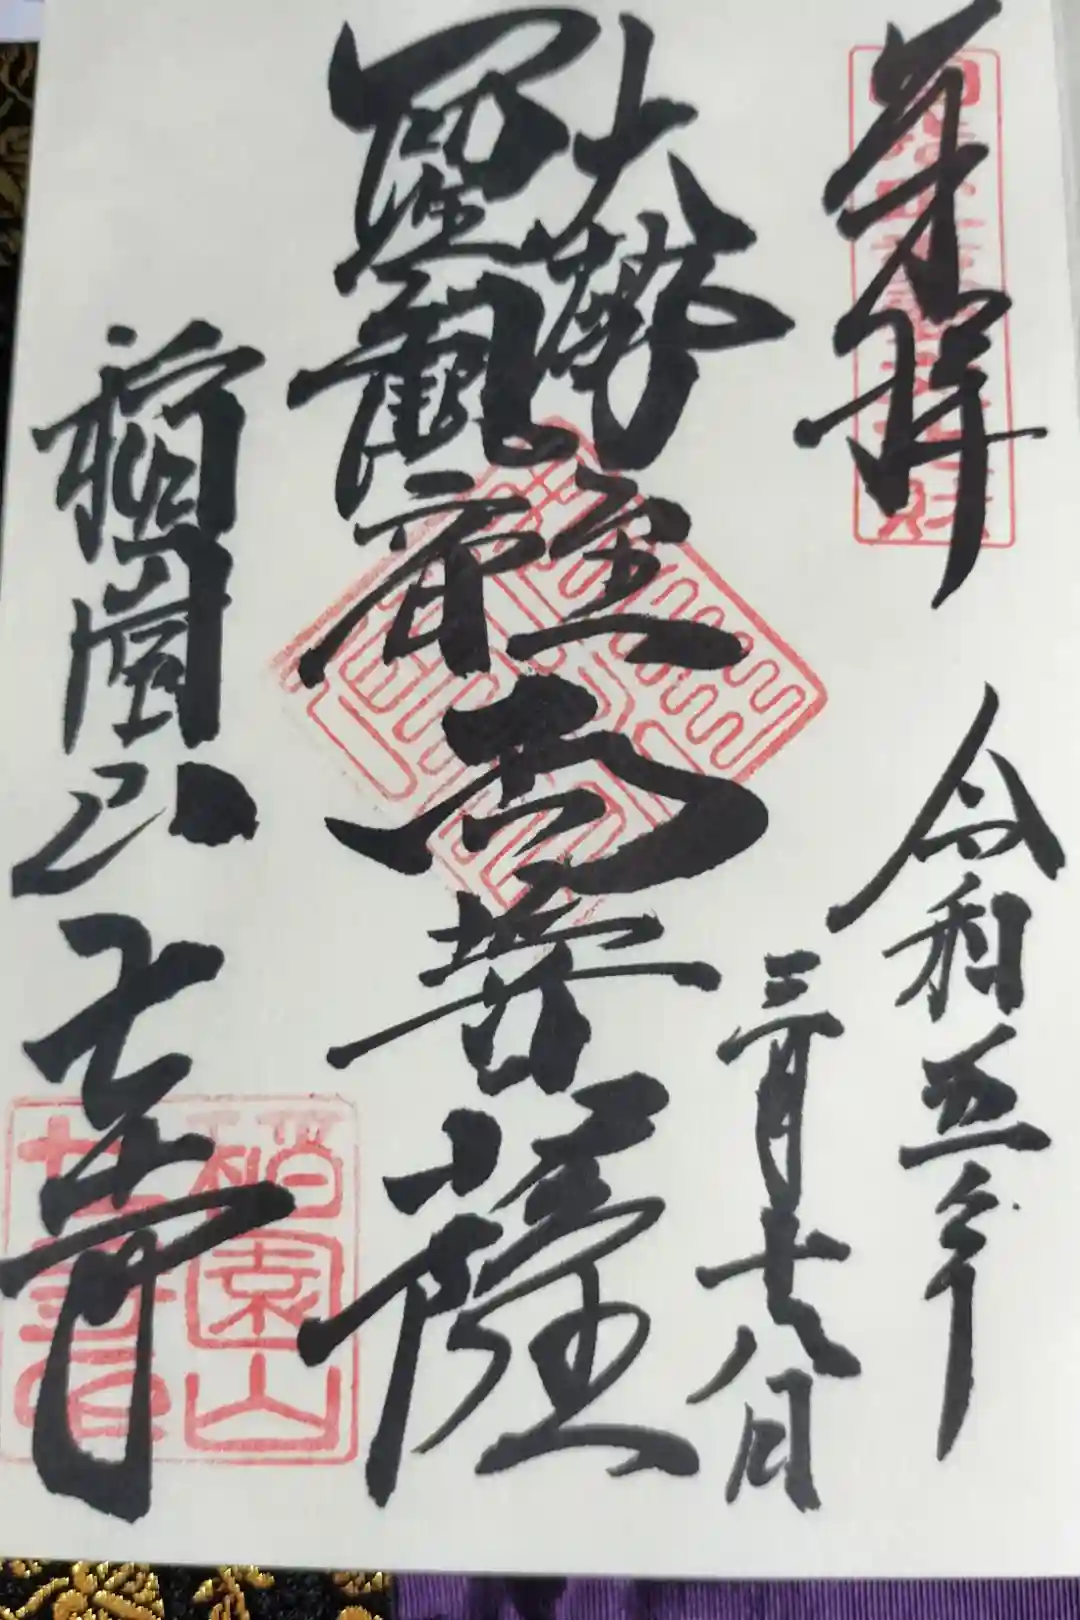 奉拝
令和五年
三月十八日
大勢至
聖観音
両菩薩
稲園山
七寺
稲園山
七寺印